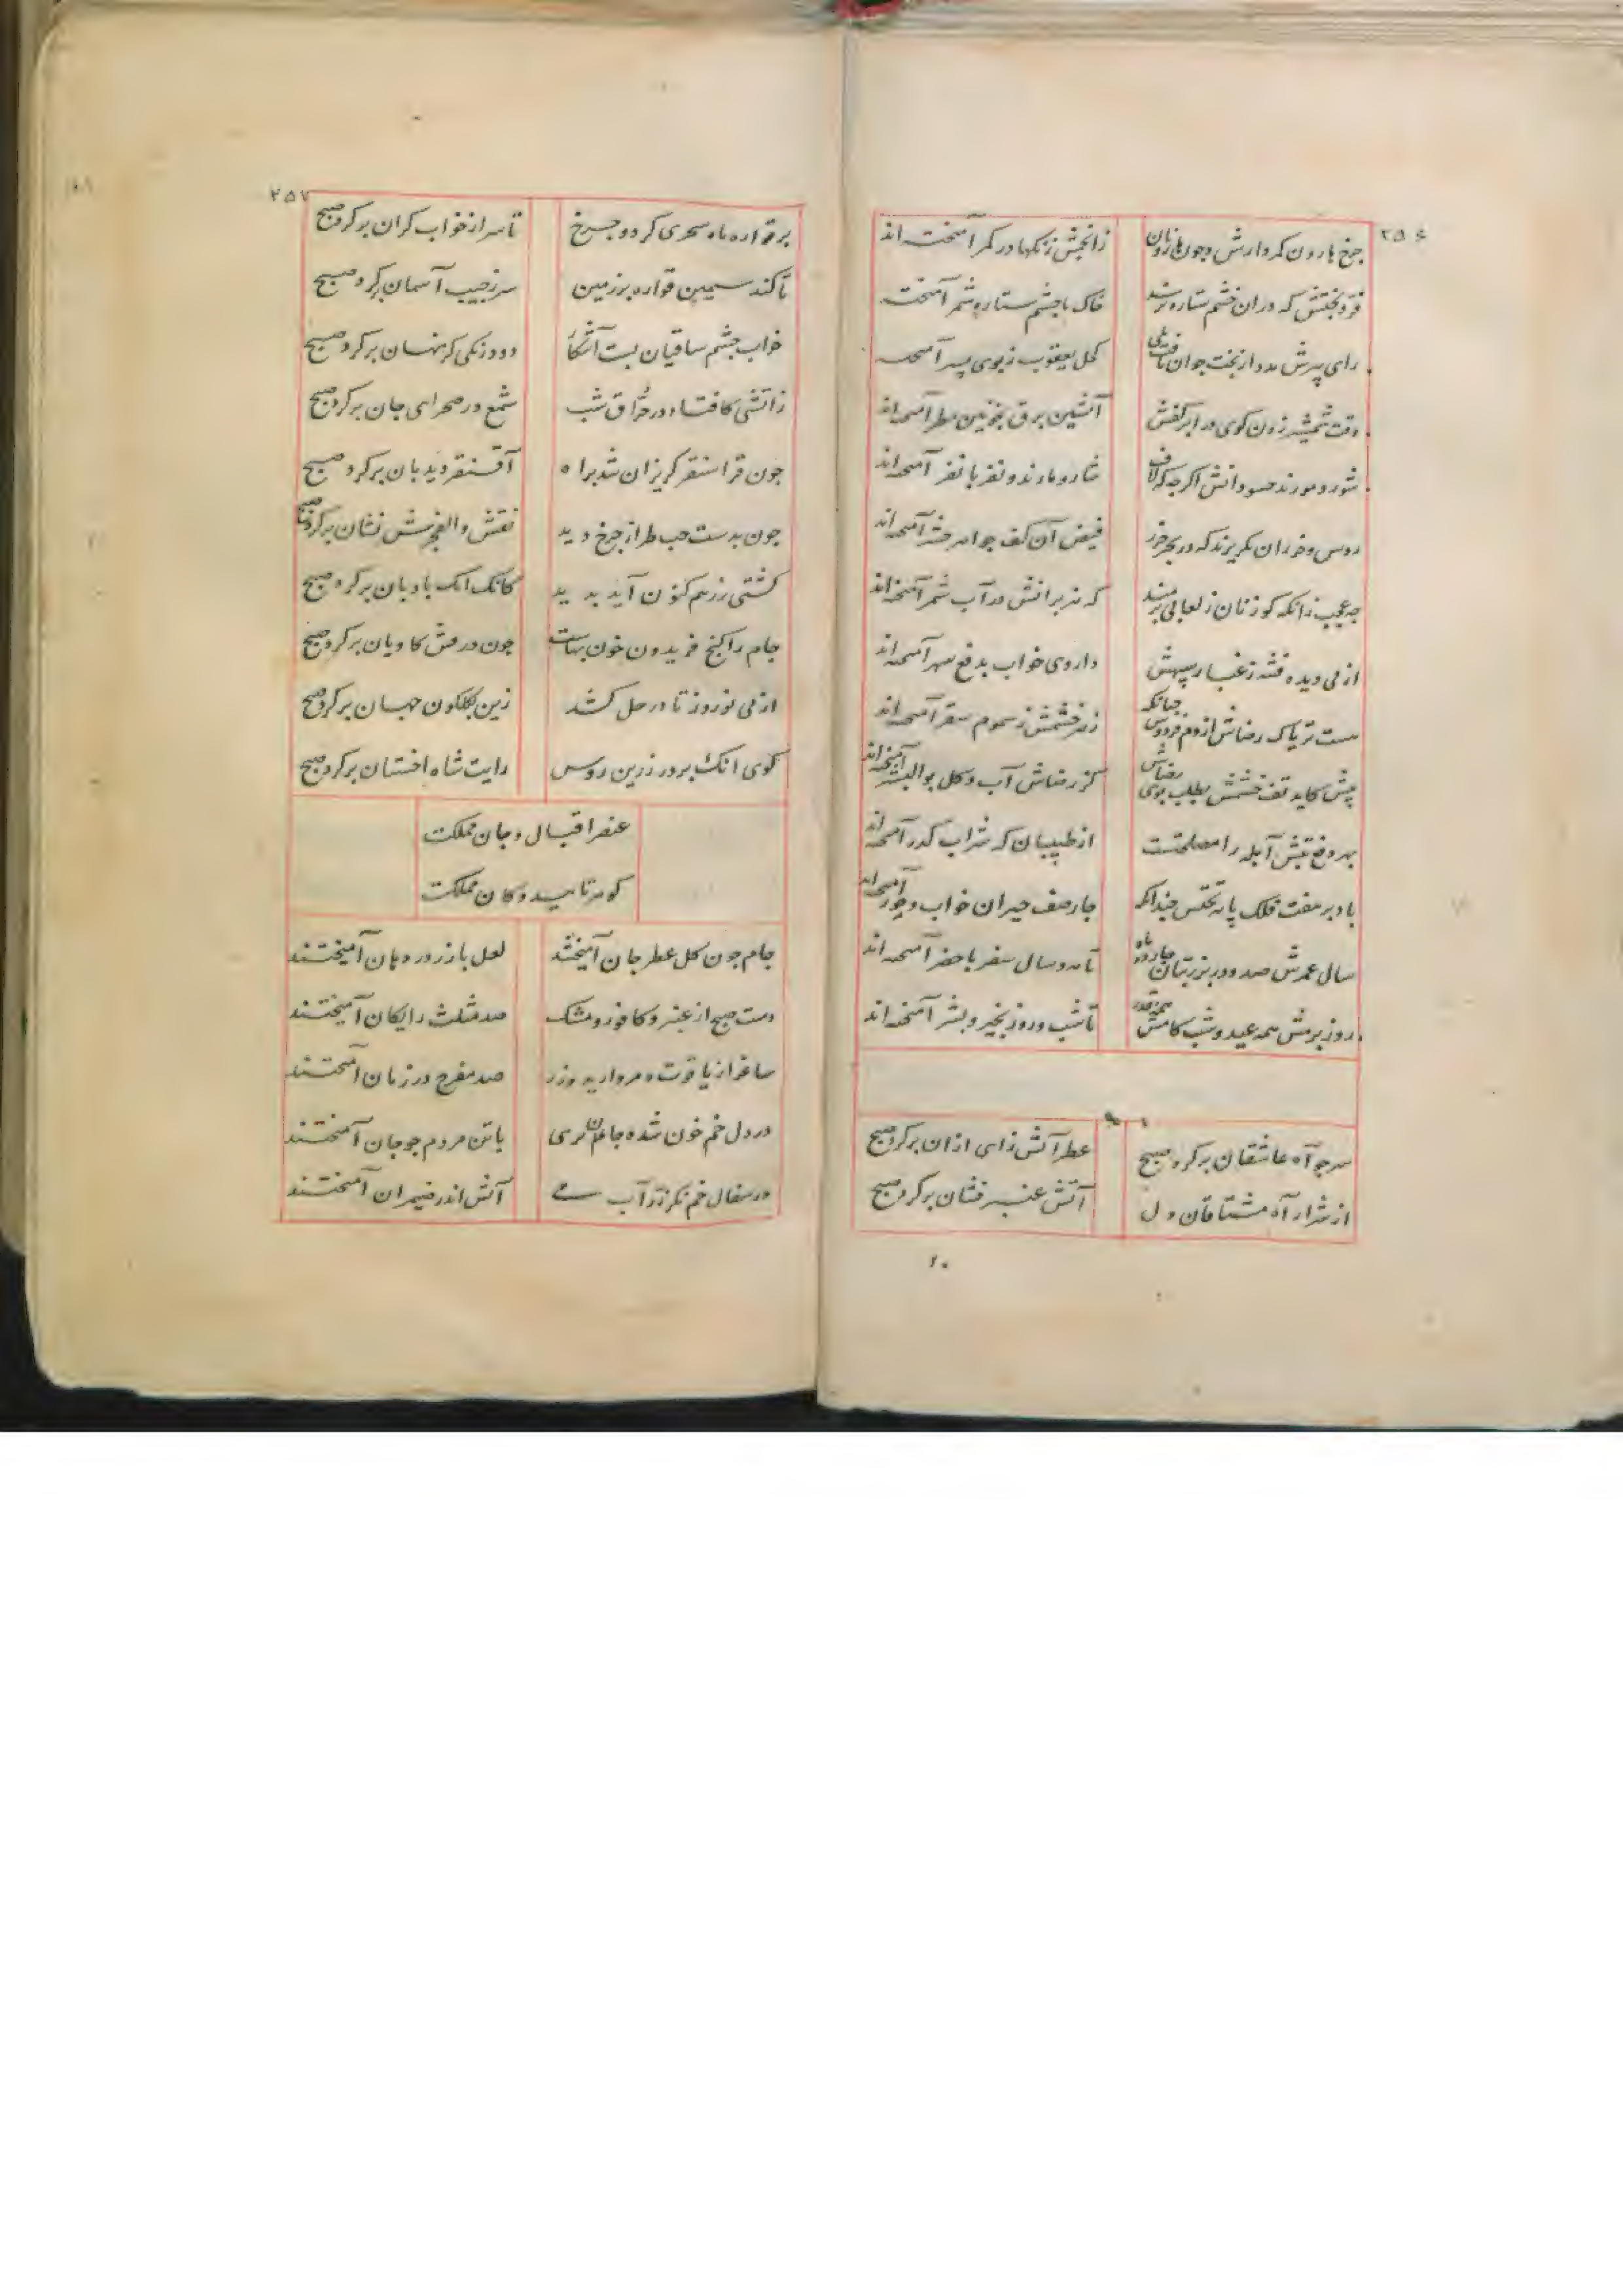 ۲۵۶
چرخ هارون کمر دارش و چون هارونان
زانجمش زنگها در کمر آمیخته‌اند
خاک با چشم ستاره شمر آمیخت
رای پیرش مدد از بخت جوان یافت بلی
کحل یعقوب ز بوی پسر آمیخته
وقت شمشیر زدن گوی در ابر کفش
آتشین برق بخونین مطر آمیخته‌اند
شار و مارند و نفر با نفر آمیخته‌اند
روس و خزران بگریزند که در بحر خزر
فیض آن کف جواهر حشر آمیخته‌اند
که هزبرانش در آب شمر آمیخته‌اند
از پی دیده فتنه ز غبار سپهش
داروی خواب بدفع سهر آمیخته‌اند
هست تریاک رضاش از دم فردوس چنانکه
زهر خشمش ز سموم سقر آمیخته‌اند
پیش کاید تف خشمش بطلب بوی رضاش
کز رضاش آب و گل بوالبشر آمیخته‌اند
بهر دفع تبش آبله را مصلحتست
از طبیبان که شراب کدر آمیخته‌اند
باد بر هفت فلک پایه تختش چندانکه
چار صف حیران خواب و خور آمیخته‌اند
تا مه و سال سفر با حضر آمیخته‌اند
روز بزمش همه عید و شب کامش همه قدر
تا شب و روز بخیر و بشر آمیخته‌اند
سرچو آه عاشقان برکرد صبح
عطر آتش زای ازان برکرد صبح
از شرار آه مشتاقان دل
آتش عنبر فشان برکرد صبح
۲۵۷
بر قواره ماه سحری کرد و چرخ
تا سر از خواب گران برکرد صبح
تا کند سیمین قواره بر زمین
سر ز جیب آسمان برکرد صبح
خواب چشم ساقیان بست آشکار
دود زنگی کز نهان برکرد صبح
زآتشی کافتاد در حراق شب
شمع در صحرای جان برکرد صبح
چون قراسنقر گریزان شد براه
آقسنقر دیدبان برکرد صبح
چون بدست حب طراز چرخ دید
نقش والفجرش نشان برکرد صبح
کشتی زرهم کنون آید پدید
کانک انک بادبان برکرد صبح
جام را گنج فریدون خون بهاست
چون درفش کاویان برکرد صبح
از پی نوروز تا در حل کشد
زین بگلگون جهان برکرد صبح
گوی انک بر در زرین روس
رایت شاه اخستان برکرد صبح
عنصر اقبال و جان مملکت
گوهر تایید و کان مملکت
جام چون گل عطر جان آمیختند
لعل با زر در دهان آمیختند
دست صبح از عنبر و کافور و مشک
صد مثلث رایگان آمیختند
ساغر از یاقوت و مروارید وزر
صد مفرح در زمان آمیختند
در دل خم خون شده جانهای
با تن مردم چو جان آمیختند
در سفال خم نگر زر آب می
آتش اندر ضیمران آمیختند